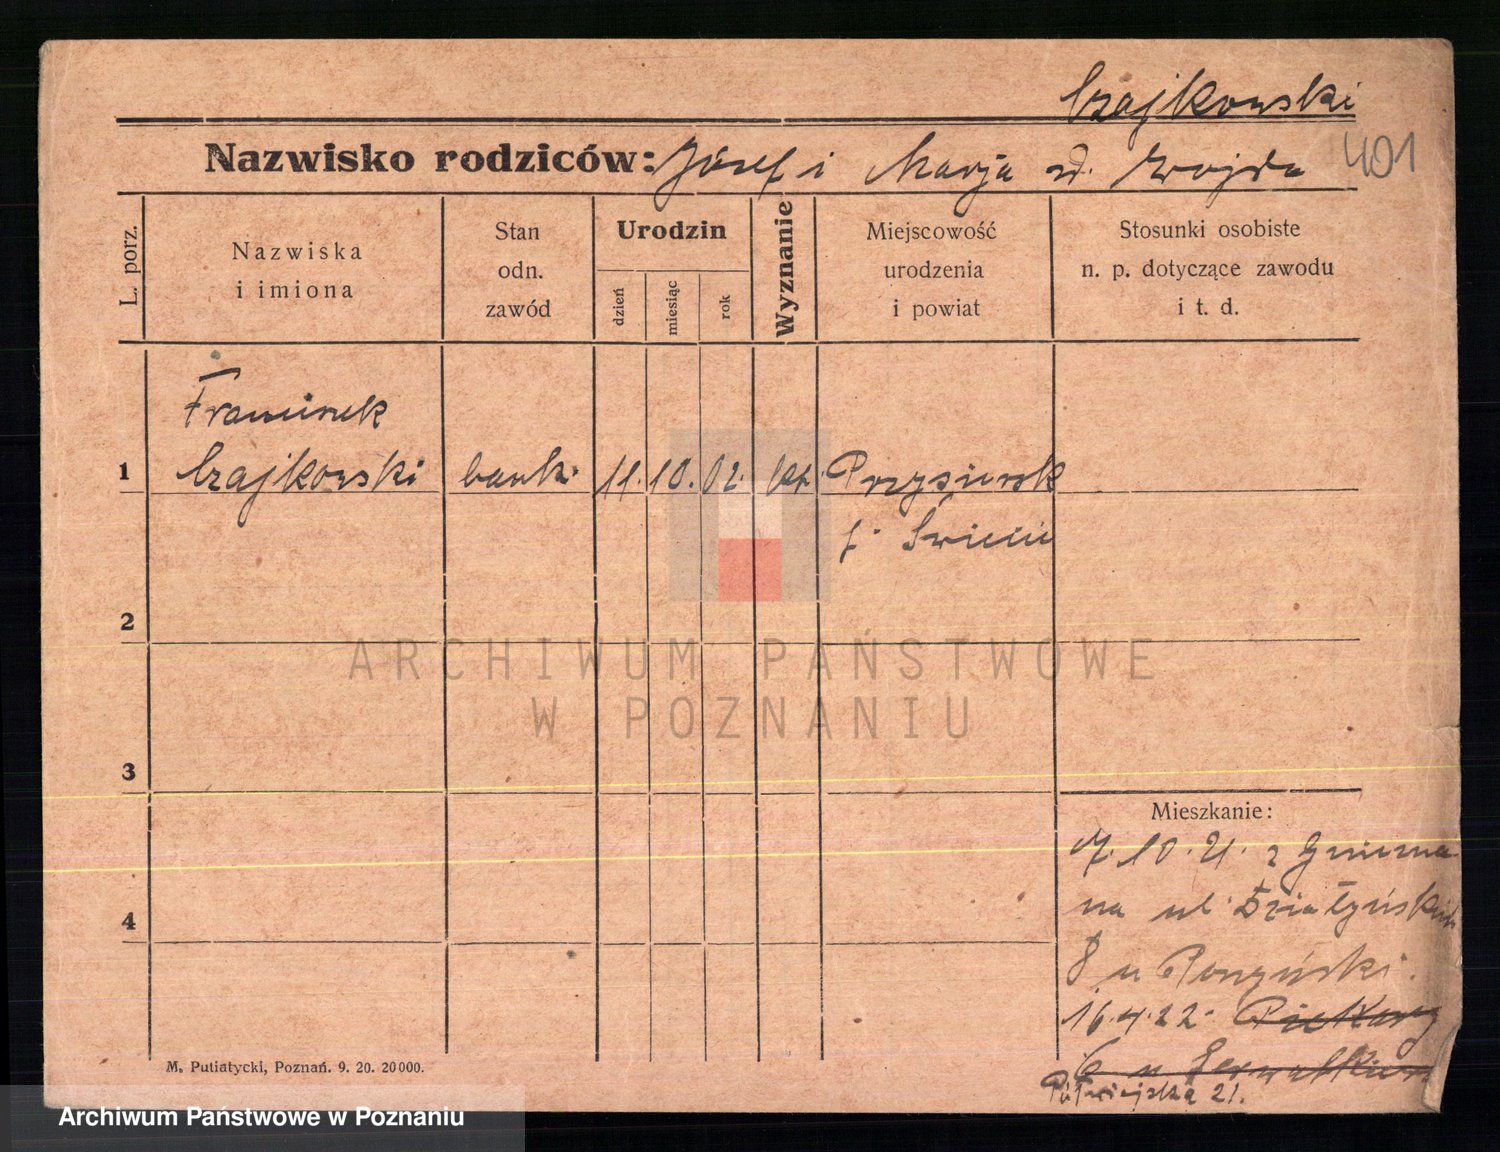 Czajkowski
Nazwisko rodziców: Józef i Marja zd. Wojda
401
L. porz.
Nazwiska
i imiona
Stan
odn.
zawód
Urodzin
dzień
miesiąc
rok
Wyznanie
Miejscowość
urodzenia
i powiat
Stosunki osobiste
n. p. dotyczące zawodu
i t. d.
Franciszek
1 Czajkowski bank. 11. 10. 02. kat. Przysiersk
Świecie
2
ARCHIWUM PAŃSTWOWE
W POZNANIU
3
Mieszkanie:
7.10.21. z Gniezna
na ul. Działyńskich
4
8 u
16.4.22. Piekary
6 u
Półwiejska 21.
M. Putiatycki, Poznań. 9. 20. 20000.
Archiwum Państwowe w Poznaniu